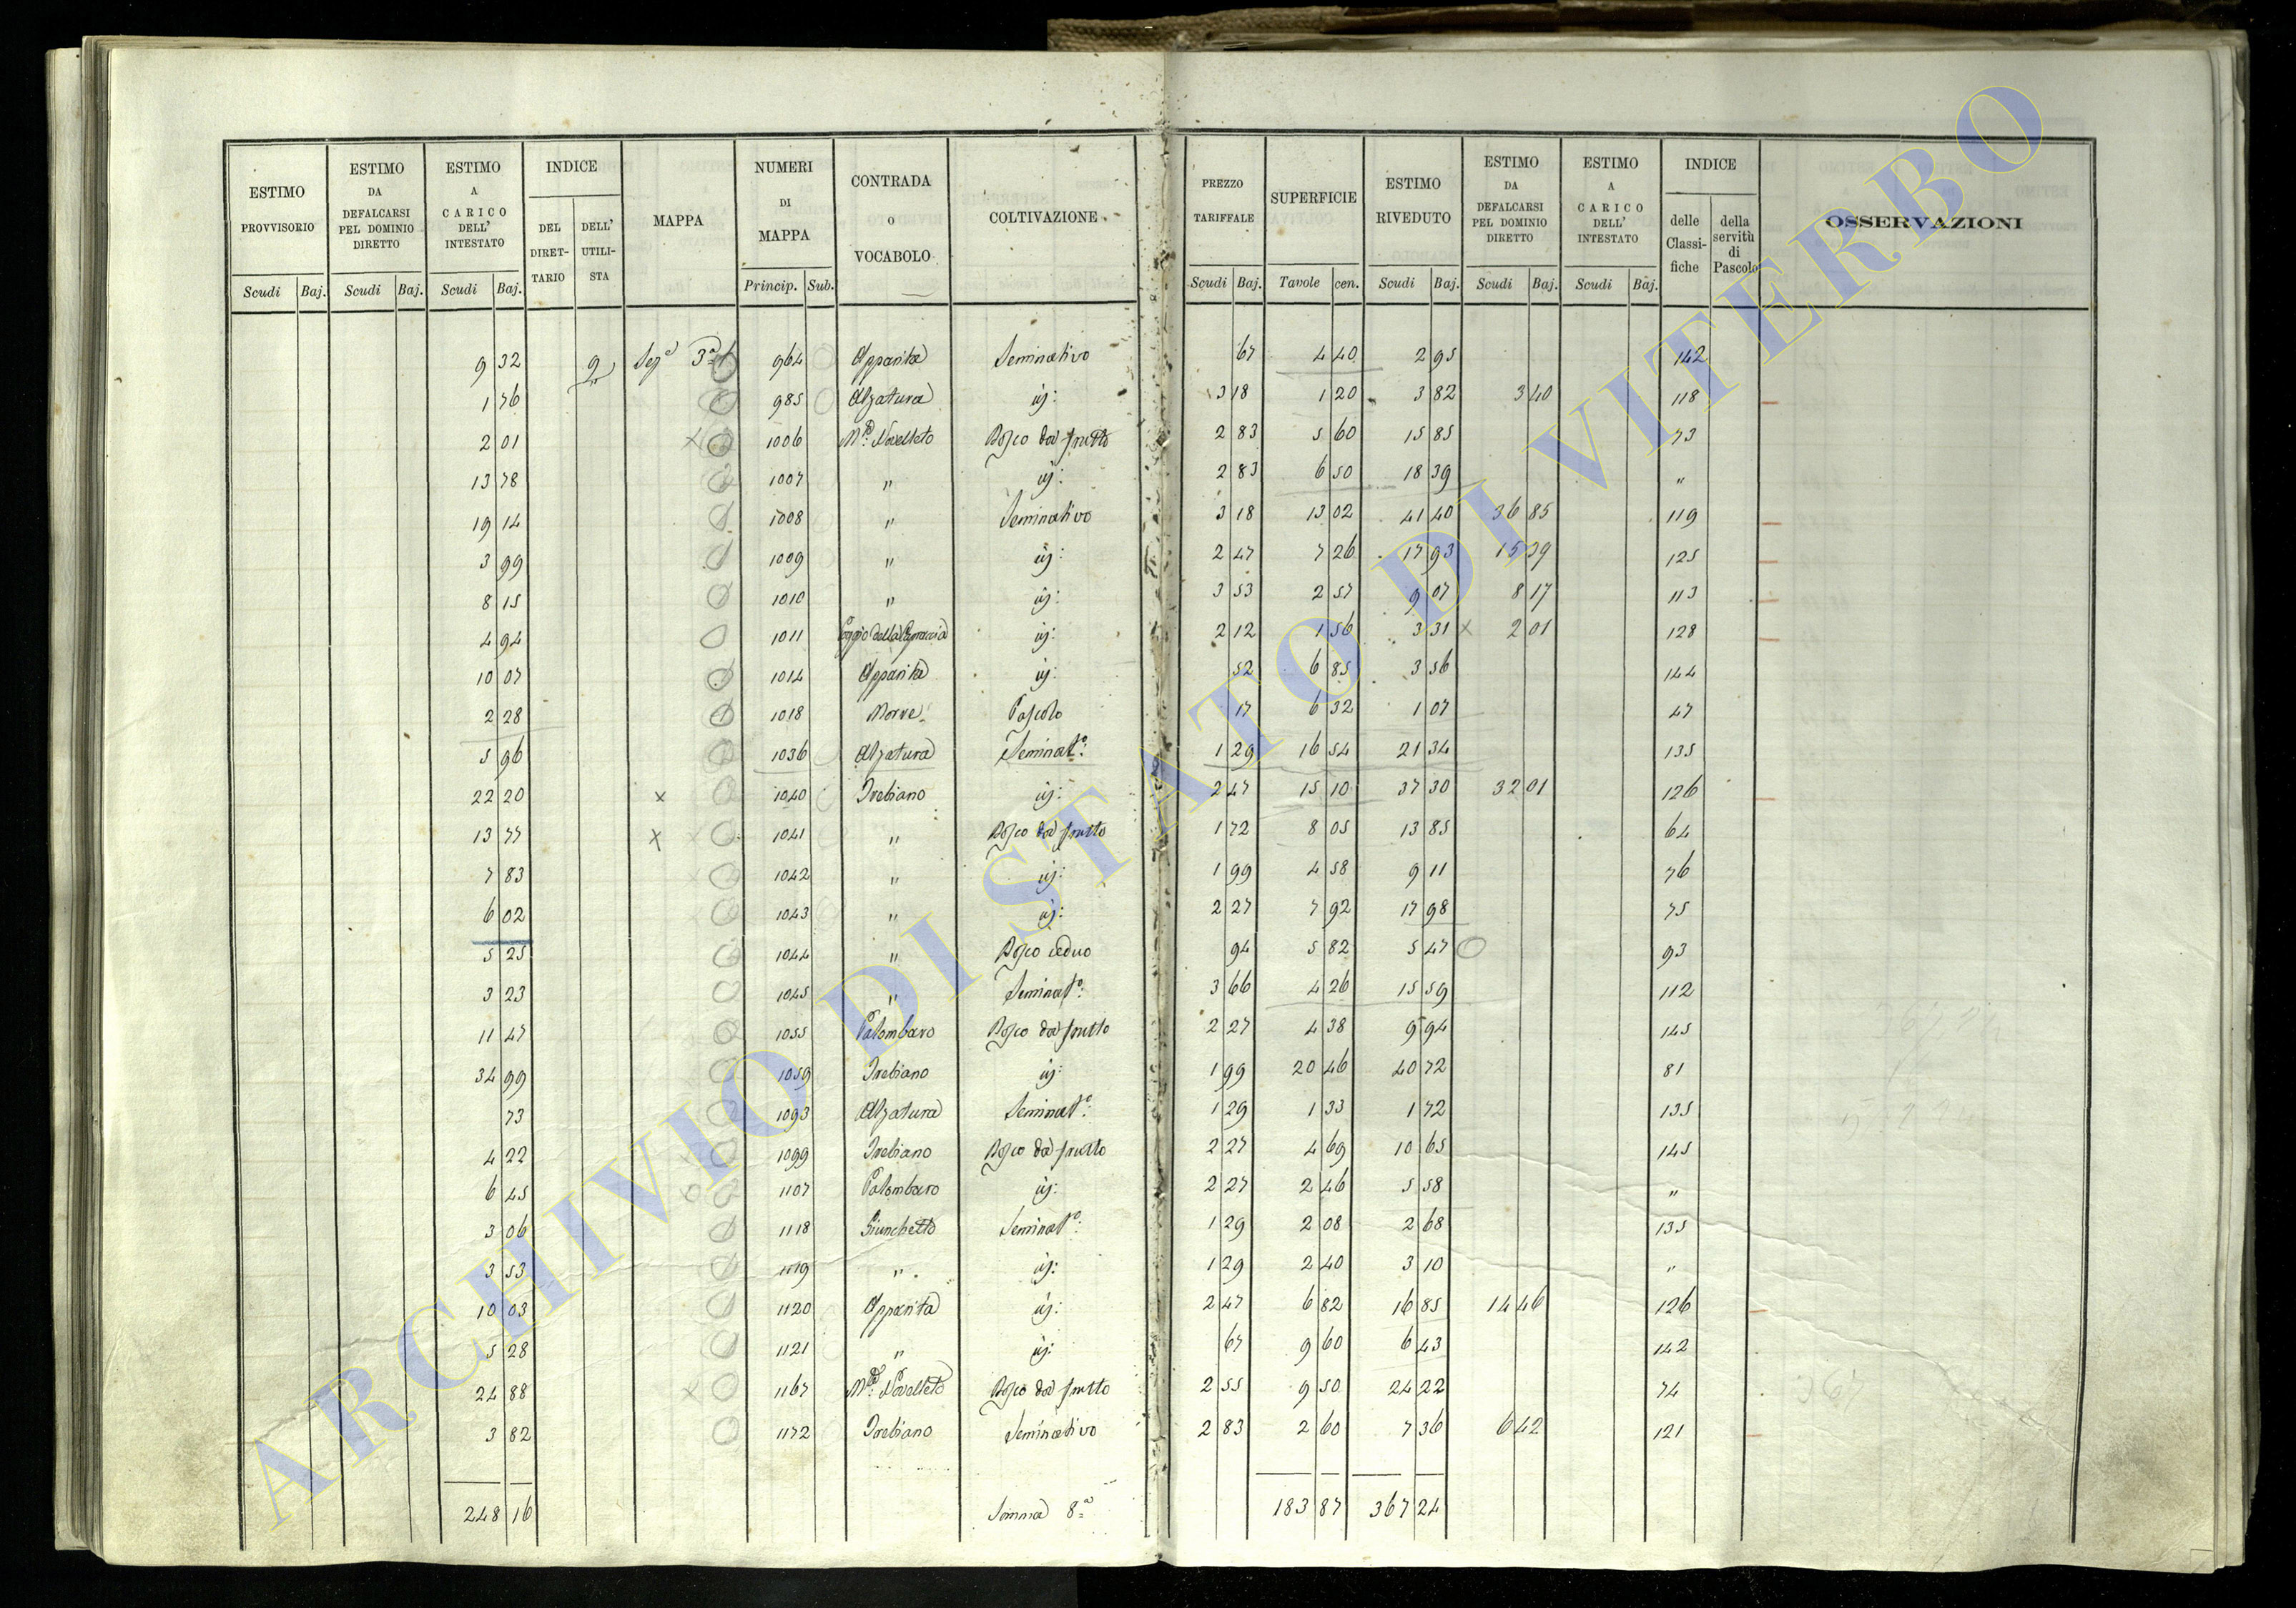 ESTIMO PROVVISORIO | ESTIMO DA DEFALCARSI PEL DOMINIO DIRETTO | ESTIMO A CARICO DELL' INTESTATO | INDICE DEL DIRET-TARIO | DELL' UTILI-STA | MAPPA | NUMERI DI MAPPA | CONTRADA o VOCABOLO | COLTIVAZIONE | PREZZO TARIFFALE | SUPERFICIE | ESTIMO RIVEDUTO | ESTIMO DA DEFALCARSI PEL DOMINIO DIRETTO | ESTIMO A CARICO DELL' INTESTATO | INDICE delle Classi-fiche | della servitù di Pascolo | OSSERVAZIONI
Scudi | Baj. | Scudi | Baj. | Scudi | Baj. | Princip. | Sub. | Scudi | Baj. | Tavole | cen. | Scudi | Baj. | Scudi | Baj. | Scudi | Baj.
9 32 | 9 | Sez.e 3a | 964 | Apparita | Seminativo | 67 | 4 40 | 2 95 | 142
1 76 | 985 | Alzatura | id: | 3 18 | 1 20 | 3 82 | 3 40 | 118
2 01 | x | 1006 | Novelleto | Bosco da frutto | 2 83 | 5 60 | 15 85 | 73
13 78 | 1007 | " | id: | 2 83 | 6 50 | 18 39 | "
19 14 | 1008 | " | Seminativo | 3 18 | 13 02 | 41 40 | 36 85 | 119
3 99 | 1009 | " | id: | 2 47 | 7 26 | 17 93 | 15 39 | 125
8 15 | 1010 | " | id: | 3 53 | 2 57 | 9 07 | 8 17 | 113
4 94 | 1011 | Poggio della | id: | 2 12 | 1 56 | 3 31 | x | 2 01 | 128
10 07 | 1014 | Apparita | id: | 52 | 6 85 | 3 56 | 144
2 28 | 1018 | Morre | Pascolo | 17 | 6 32 | 1 07 | 47
5 96 | 1036 | Alzatura | Seminato: | 1 29 | 16 54 | 21 34 | 135
22 20 | x | 1040 | Trebiano | id: | 2 47 | 15 10 | 37 30 | 32 01 | 126
13 77 | x | 1041 | " | Bosco da frutto | 1 72 | 8 05 | 13 85 | 64
7 83 | 1042 | " | id: | 1 99 | 4 58 | 9 11 | 76
6 02 | 1043 | " | id: | 2 27 | 7 92 | 17 98 | 75
5 25 | 1044 | " | Bosco ceduo | 94 | 5 82 | 5 47 | 93
3 23 | 1045 | " | Seminato: | 3 66 | 4 26 | 15 59 | 112
11 47 | 1055 | Palombaro | Bosco da frutto | 2 27 | 4 38 | 9 94 | 145
34 99 | 1059 | Trebiano | id: | 1 99 | 20 46 | 40 72 | 81
73 | 1093 | Alzatura | Seminato: | 1 29 | 1 33 | 1 72 | 135
4 22 | 1099 | Trebiano | Bosco da frutto | 2 27 | 4 69 | 10 65 | 145
6 45 | 1107 | Palombaro | id: | 2 27 | 2 46 | 5 58 | "
3 06 | 1118 | Giunchetto | Seminato: | 1 29 | 2 08 | 2 68 | 135
3 53 | 1119 | " | id: | 1 29 | 2 40 | 3 10 | "
10 03 | 1120 | Apparita | id: | 2 47 | 6 82 | 16 85 | 14 46 | 126
5 28 | 1121 | " | id: | 67 | 9 60 | 6 43 | 142
24 88 | x | 1167 | Novelleto | Bosco da frutto | 2 55 | 9 50 | 24 22 | 74
3 82 | 1172 | Trebiano | Seminativo | 2 83 | 2 60 | 7 36 | 6 42 | 121
248 16 | Somma 8a | 183 87 | 367 24
367
ARCHIVIO DI STATO DI VITERBO